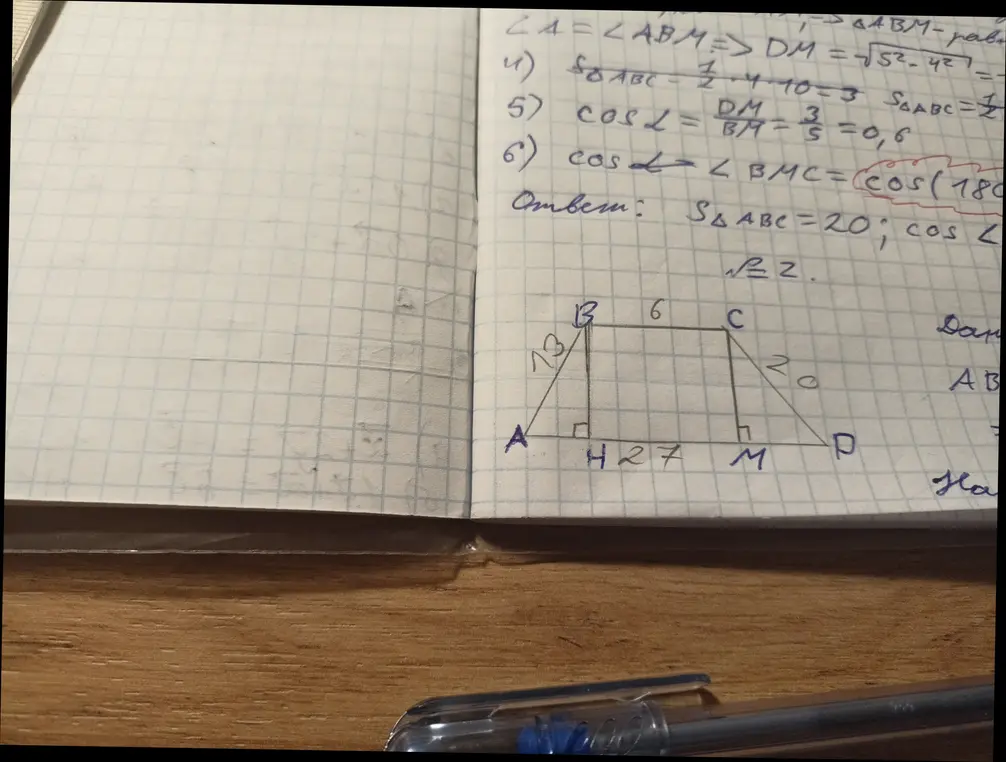 ∠A = ∠ABM => DM = √5²-4² =
4) S△ABC = 1/2 · 4 · 10 = 3 S△ABC = 1/2
5) cos α = DM/BM = 3/5 = 0,6
6) cos α ∠BMC = cos(180
Ответ: S△ABC = 20; cos ∠
№ 2.
B 6 C
13 20
A H 27 M D
Дан
AB
На